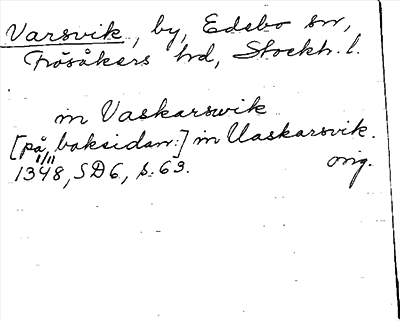 Varsvik, by, Edebo sn,
Frösåkers hd, Stockh. l.
in Vaskarswik
[på baksidan:] in Uaskarsvik.
1/11 orig.
1348, SD6, s. 63.